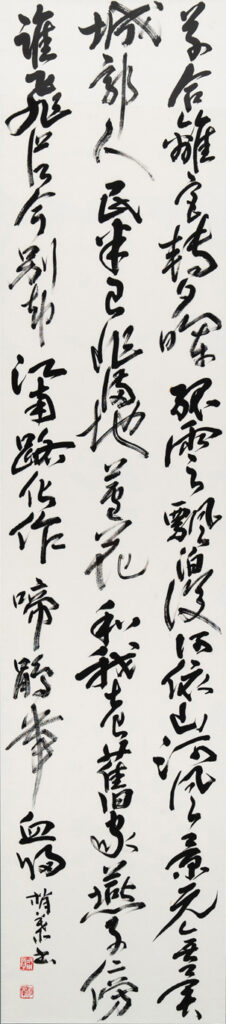 草合離宮轉夕暉孤雲飄泊復何依山河風景元無異
城郭人民半已非滿地蘆花和我老舊家燕子傍
誰飛從今別却江南路化作啼鵑帶血歸
書